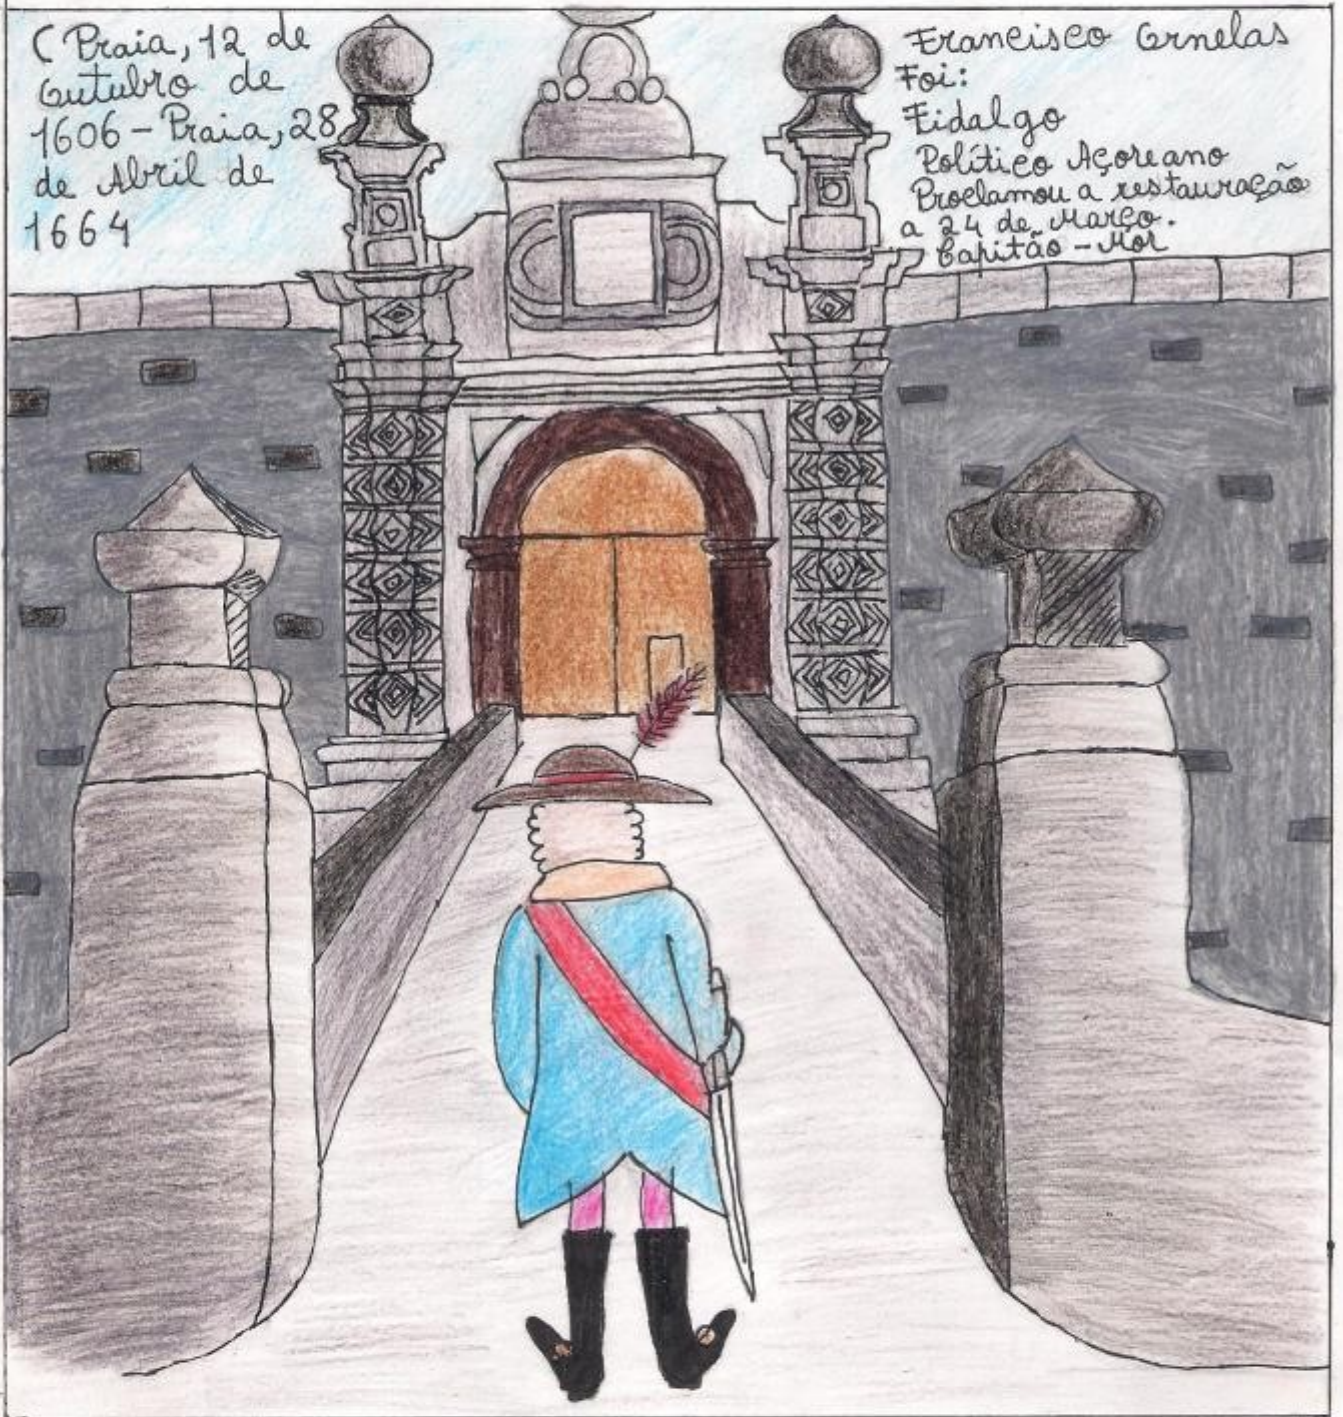 (Praia, 12 de
Outubro de
1606 - Praia, 28
de Abril de
1664
Francisco Ornelas
Foi:
Fidalgo
Político Açoreano
Proclamou a restauração
a 24 de Março.
Capitão - Mor